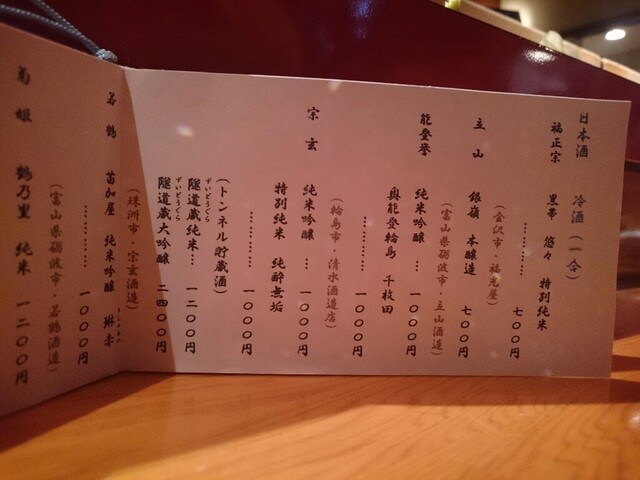 日本酒　冷酒（一合）
福正宗　黒帯　悠々　特別純米
…………　七〇〇円
（金沢市・福光屋）
立山　銀嶺　本醸造　七〇〇円
（富山県砺波市・立山酒造）
能登誉　純米吟醸　…　一〇〇〇円
奥能登輪島　千枚田
…………　一〇〇〇円
（輪島市・清水酒造店）
宗玄　純米吟醸　…　一〇〇〇円
特別純米　純酔無垢
…………　一〇〇〇円
（トンネル貯蔵酒）
隧道蔵純米…　一二〇〇円
ずいどうぐら
隧道蔵大吟醸　二四〇〇円
ずいどうぐら
（珠洲市・宗玄酒造）
若鶴　苗加屋　純米吟醸　琳青
…………　一〇〇〇円
（富山県砺波市・若鶴酒造）
菊姫　鶴乃里　純米　一二〇〇円